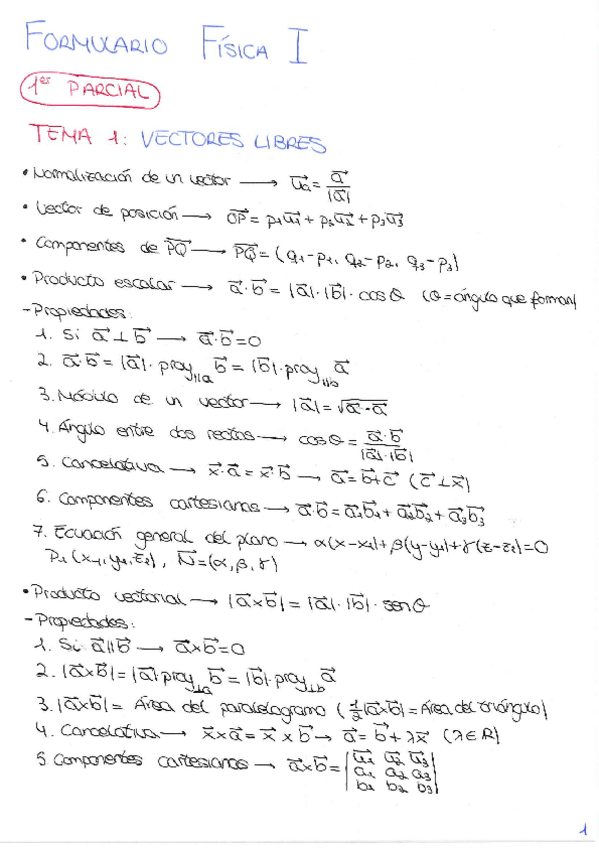 FORMULARIO FÍSICA I
1er PARCIAL
TEMA 1: VECTORES LIBRES
• Normalización de un vector → u⃗a = a⃗/|a⃗|
• Vector de posición → OP⃗ = p₁u⃗₁ + p₂u⃗₂ + p₃u⃗₃
• Componentes de PQ⃗ → PQ⃗ = (q₁-p₁, q₂-p₂, q₃-p₃)
• Producto escalar → a⃗·b⃗ = |a⃗|·|b⃗|·cosθ (θ=ángulo que forman)
- Propiedades:
1. Si a⃗⊥b⃗ → a⃗·b⃗=0
2. a⃗·b⃗ = |a⃗|·proy||a b⃗ = |b⃗|·proy||b a⃗
3. Módulo de un vector → |a⃗| = √(a⃗·a⃗)
4. Ángulo entre dos rectas → cosθ = a⃗·b⃗/|a⃗|·|b⃗|
5. Cancelativa → x⃗·a⃗ = x⃗·b⃗ → a⃗ = b⃗+c⃗ (c⃗⊥x⃗)
6. Componentes cartesianas → a⃗·b⃗ = a⃗₁b⃗₁ + a⃗₂b⃗₂ + a⃗₃b⃗₃
7. Ecuación general del plano → α(x-x₁)+β(y-y₁)+γ(z-z₁)=0
P₁(x₁,y₁,z₁), N⃗=(α,β,γ)
• Producto vectorial → |a⃗×b⃗| = |a⃗|·|b⃗|·senθ
- Propiedades:
1. Si a⃗||b⃗ → a⃗×b⃗=0
2. |a⃗×b⃗| = |a⃗|·proy⊥a b⃗ = |b⃗|·proy⊥b a⃗
3. |a⃗×b⃗| = Área del paralelogramo (½|a⃗×b⃗| = Área del triángulo)
4. Cancelativa → x⃗×a⃗ = x⃗×b⃗ → a⃗ = b⃗+λx⃗ (λ∈R)
5. Componentes cartesianas → a⃗×b⃗ = |u⃗₁ u⃗₂ u⃗₃|
|a₁ a₂ a₃|
|b₁ b₂ b₃|
1